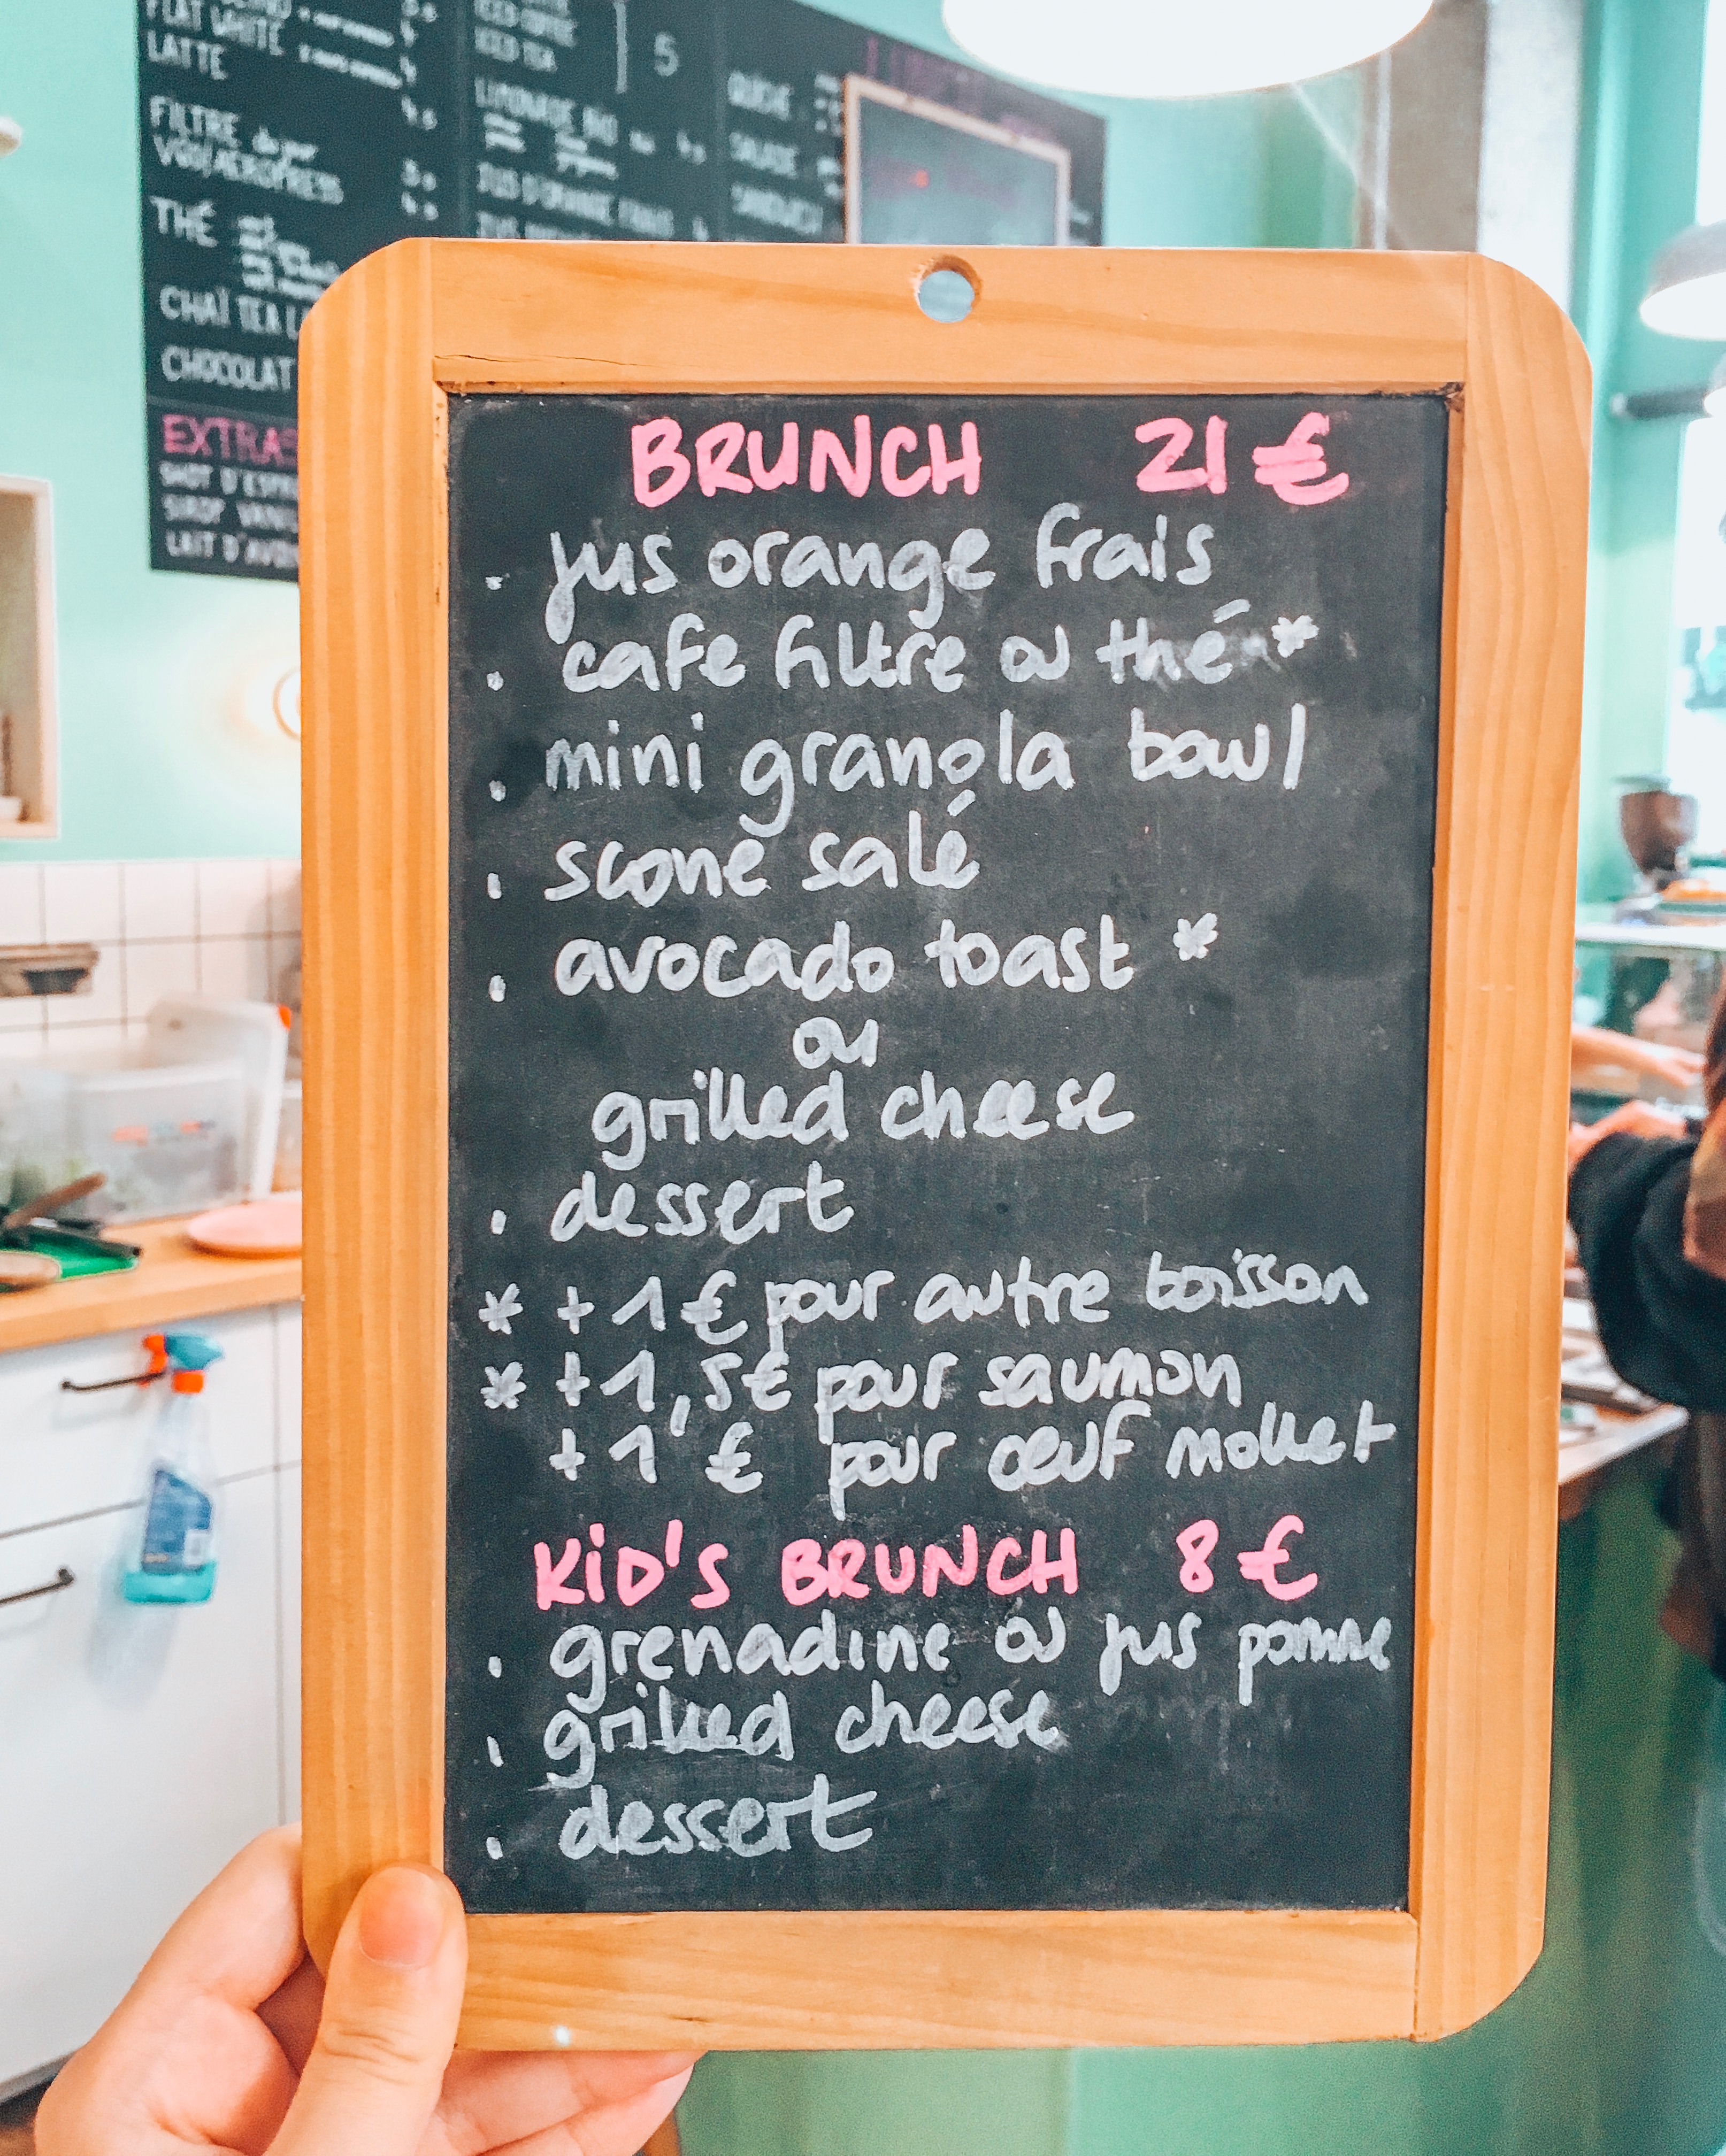 FLAT WHITE
LATTE
FILTRE du jour
V60/AEROPRESS
THÉ
CHAÏ TEA L
CHOCOLAT
EXTRAS
SHOT D'ESPR
SIROP VANIL
LAIT D'AVOI
ICED COFFEE
ICED TEA
5
LIMONADE BIO
JUS D'ORANGE FRAIS
QUICHE
SALADE
SANDWICH
BRUNCH 21 €
. jus orange frais
. cafe filtre ou thé *
. mini granola bowl
. scone salé
. avocado toast *
ou
grilled cheese
. dessert
* + 1 € pour autre boisson
* + 1,5€ pour saumon
+ 1 € pour œuf mollet
KiD'S BRUNCH 8 €
. grenadine ou jus pomme
. grilled cheese
. dessert